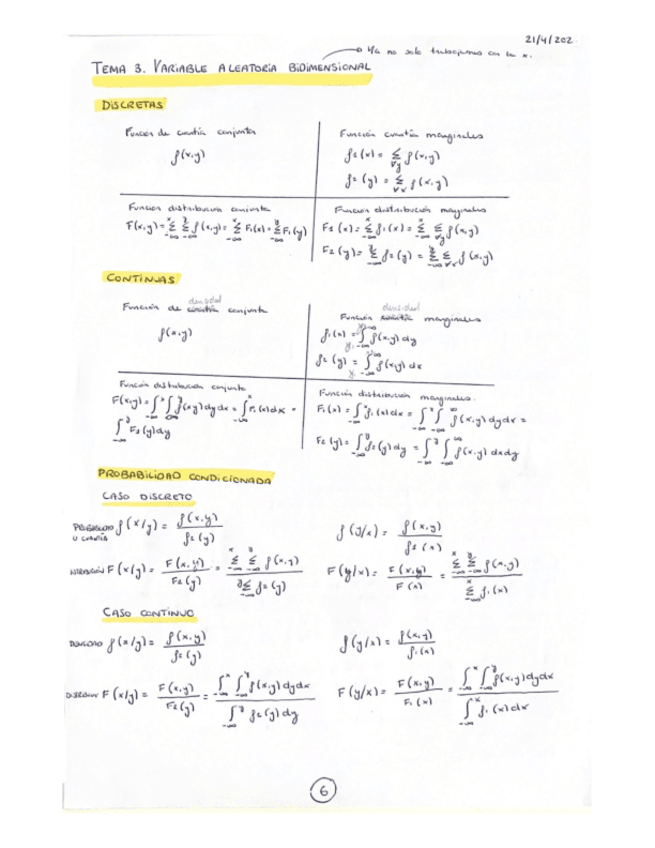 21/4/202
Ya no solo trabajamos con la x.
TEMA 3. VARIABLE ALEATORIA BIDIMENSIONAL
DISCRETAS
Función de cuantía conjunta
f(x,y)
Función cuantía marginales
f1(x) = Σ∀y f(x,y)
f2(y) = Σ∀x f(x,y)
Función distribución conjunta
F(x,y) = Σ-∞^x Σ-∞^y f(x,y) = Σ-∞^x F1(x) = Σ-∞^y F2(y)
Función distribución marginales
F1(x) = Σ-∞^x f1(x) = Σ-∞^x Σ∀y f(x,y)
F2(y) = Σ-∞^y f2(y) = Σ-∞^y Σ∀x f(x,y)
CONTINUAS
densidad
Función de cuantía conjunta
f(x,y)
densidad
Función cuantía marginales
f1(x) = ∫-∞^∞ f(x,y) dy
f2(y) = ∫-∞^∞ f(x,y) dx
Función distribución conjunta
F(x,y) = ∫-∞^x ∫-∞^y f(x,y) dy dx = ∫-∞^x F1(x) dx =
∫-∞^y F2(y) dy
Función distribución marginales.
F1(x) = ∫-∞^x f1(x) dx = ∫-∞^x ∫-∞^∞ f(x,y) dy dx =
F2(y) = ∫-∞^y f2(y) dy = ∫-∞^y ∫-∞^∞ f(x,y) dx dy
PROBABILIDAD CONDICIONADA
CASO DISCRETO
PROBABILIDAD
O CUANTÍA
f(x/y) = f(x,y) / f2(y)
f(y/x) = f(x,y) / f1(x)
F(x/y) = F(x,y) / F2(y) = Σ-∞^x Σ-∞^y f(x,y) / Σ-∞^y f2(y)
F(y/x) = F(x,y) / F(x) = Σ-∞^x Σ-∞^y f(x,y) / Σ-∞^x f1(x)
CASO CONTINUO
f(x/y) = f(x,y) / f2(y)
f(y/x) = f(x,y) / f1(x)
F(x/y) = F(x,y) / F2(y) = ∫-∞^x ∫-∞^y f(x,y) dy dx / ∫-∞^y f2(y) dy
F(y/x) = F(x,y) / F1(x) = ∫-∞^x ∫-∞^y f(x,y) dy dx / ∫-∞^x f1(x) dx
6